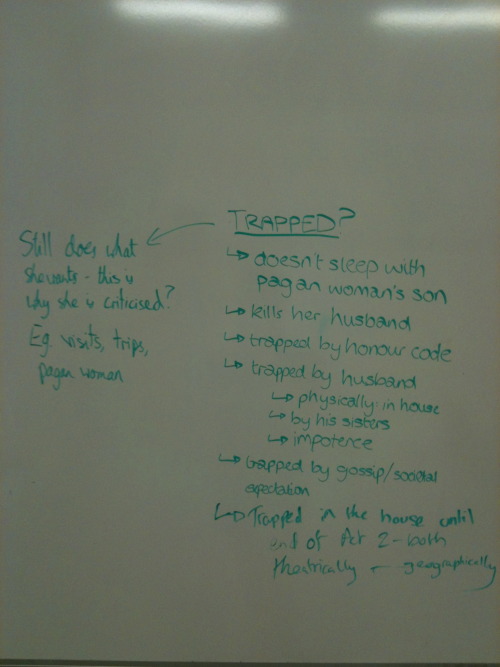 TRAPPED?
↳ doesn't sleep with
pagan woman's son
↳ kills her husband
↳ trapped by honour code
↳ trapped by husband
↳ physically: in house
↳ by his sisters
↳ impotence
↳ trapped by gossip/societal
expectation
↳ Trapped in the house until
end of Act 2 - both
theatrically - geographically
Still does what
she wants - this is
why she is criticised?
Eg. visits, trips,
pagan woman